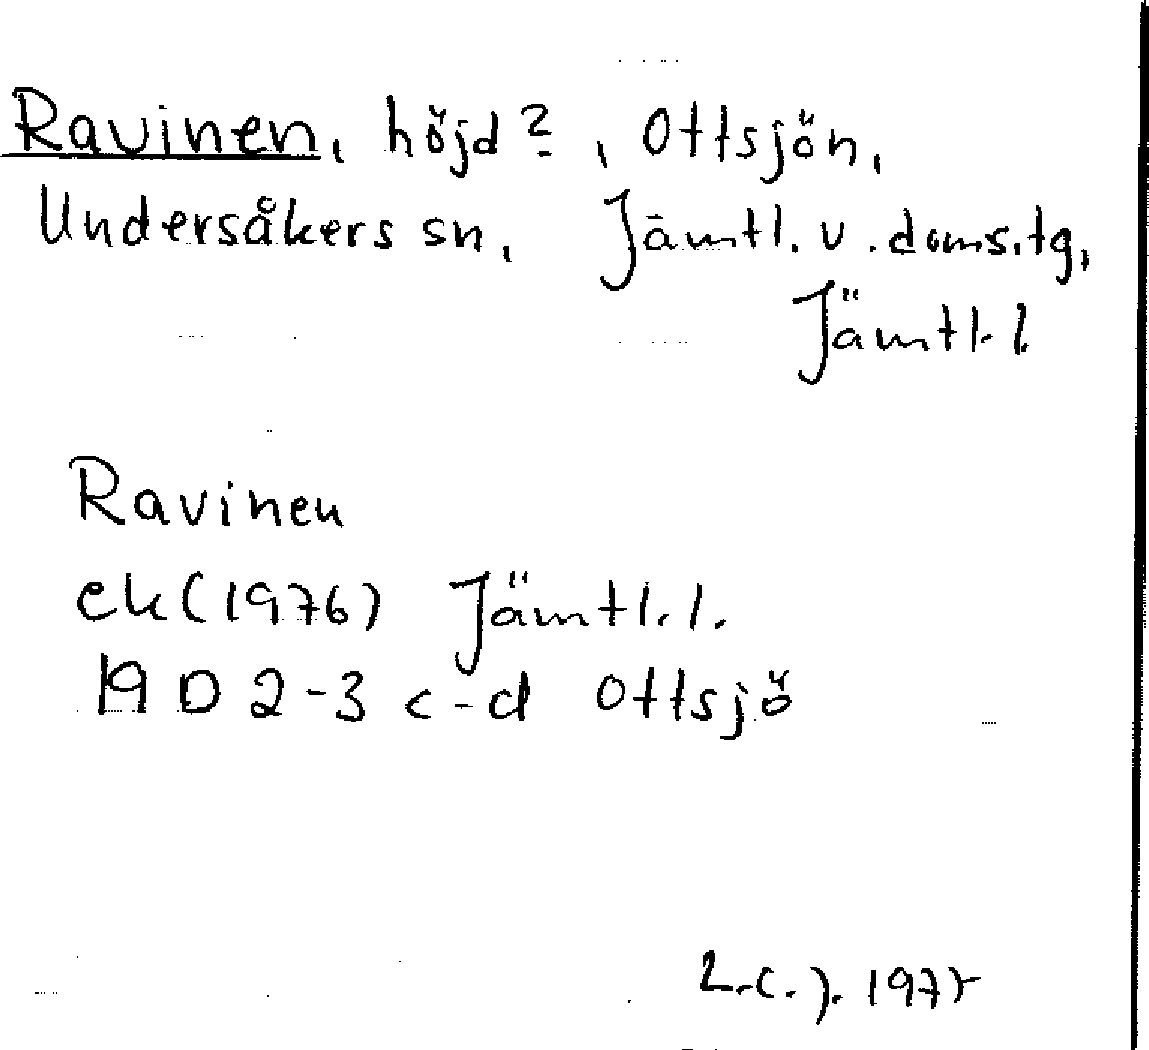 Ravinen, höjd?, Ottsjön,
Undersåkers sn, Jämtl. v. doms.tg,
Jämtl. l.
Ravinen
ek (1976) Jämtl. l.
19 D 2-3 c-d Ottsjö
L.C.J.